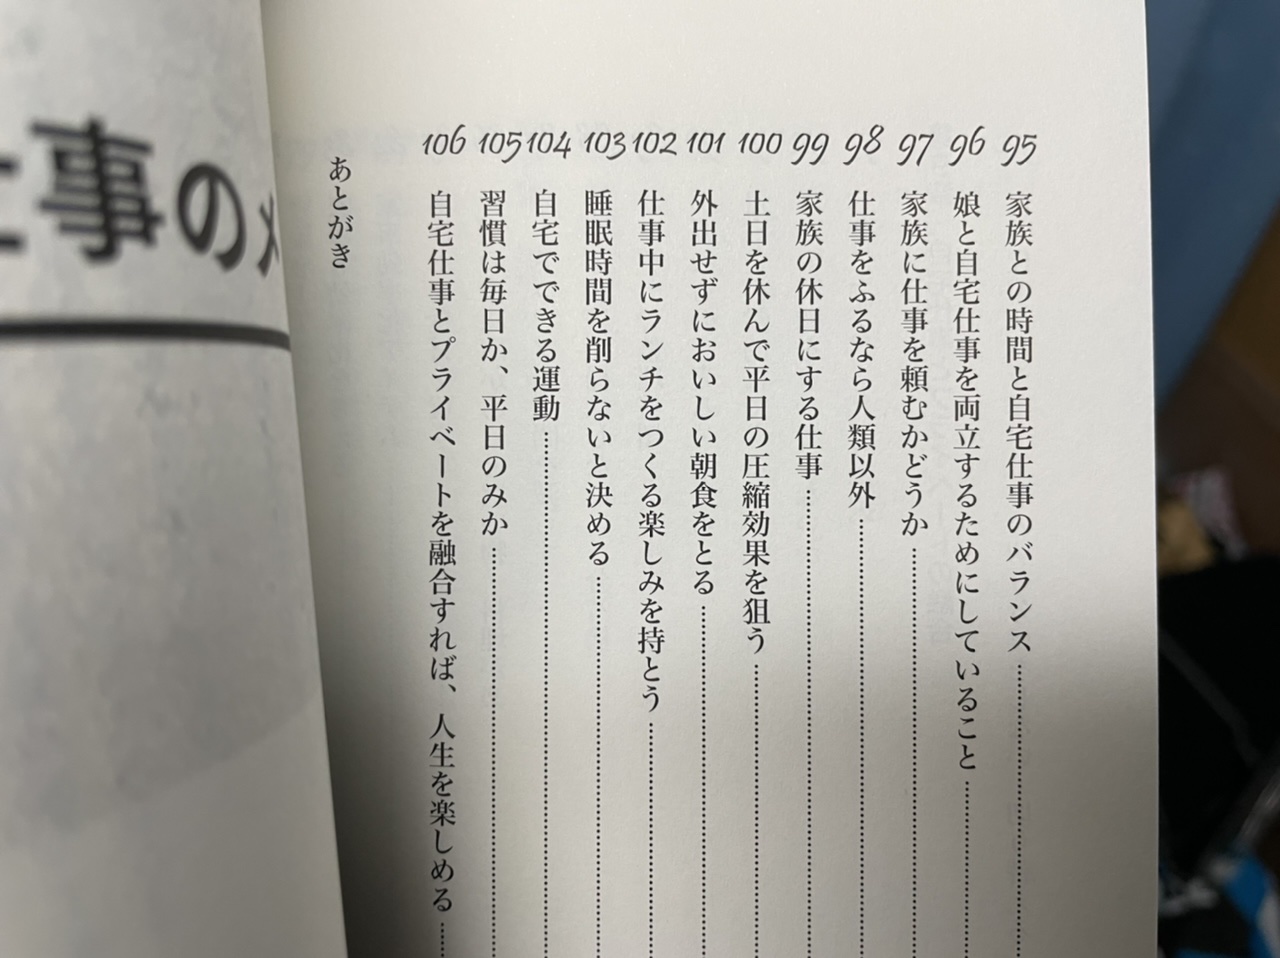 95 家族との時間と自宅仕事のバランス
96 娘と自宅仕事を両立するためにしていること
97 家族に仕事を頼むかどうか
98 仕事をふるなら人類以外
99 家族の休日にする仕事
100 土日を休んで平日の圧縮効果を狙う
101 外出せずにおいしい朝食をとる
102 仕事中にランチをつくる楽しみを持とう
103 睡眠時間を削らないと決める
104 自宅でできる運動
105 習慣は毎日か、平日のみか
106 自宅仕事とプライベートを融合すれば、人生を楽しめる
あとがき
事の